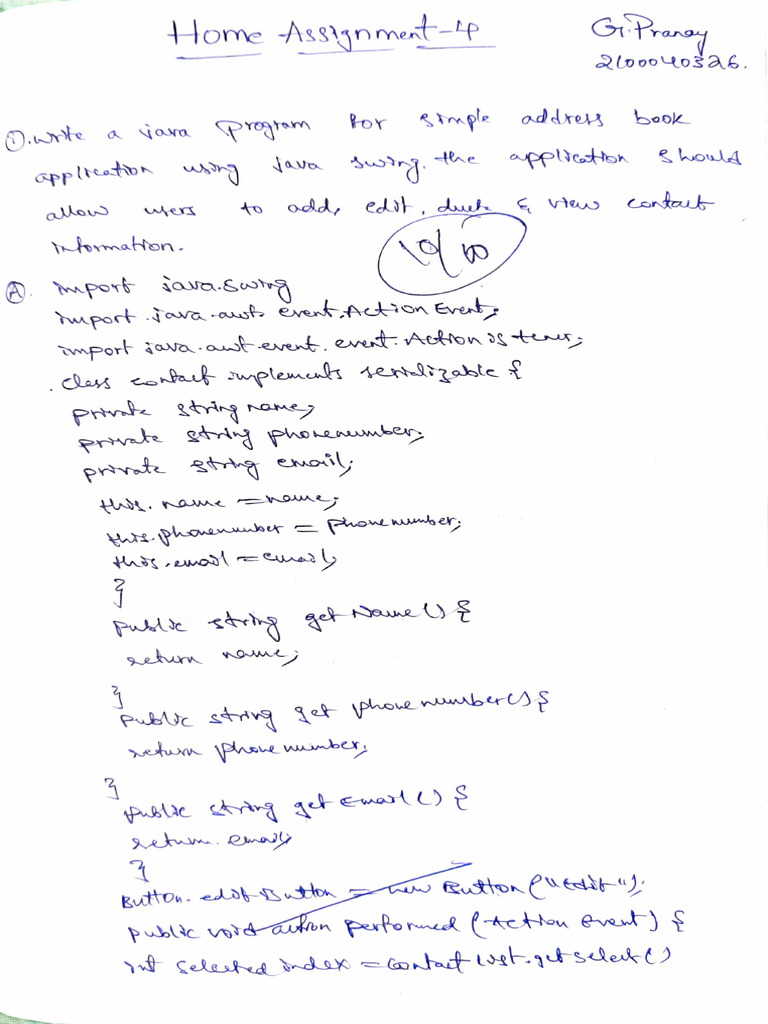 Home Assignment-4
G. Pranay
2100040326.
①. write a java program for simple address book
application using java swing. the application should
allow users to add, edit, & view contact
information.
10/10
Ⓐ. import java.swing
import.java.awt. event.ActionEvent;
import java.awt.event.event.Actionistener;
.class contact implements serializable {
private string name;
private string phonenumber;
private string email;
this.name = name;
this.phonenumber = phonenumber;
this.email = email;
}
public string getName() {
return name;
}
public string get phonenumber() {
return phonenumber;
}
public string getEmail() {
return.email;
}
Button.editButton = new Button("Edit");
public void action performed (Action Event) {
int selected index = contact List.getselect()